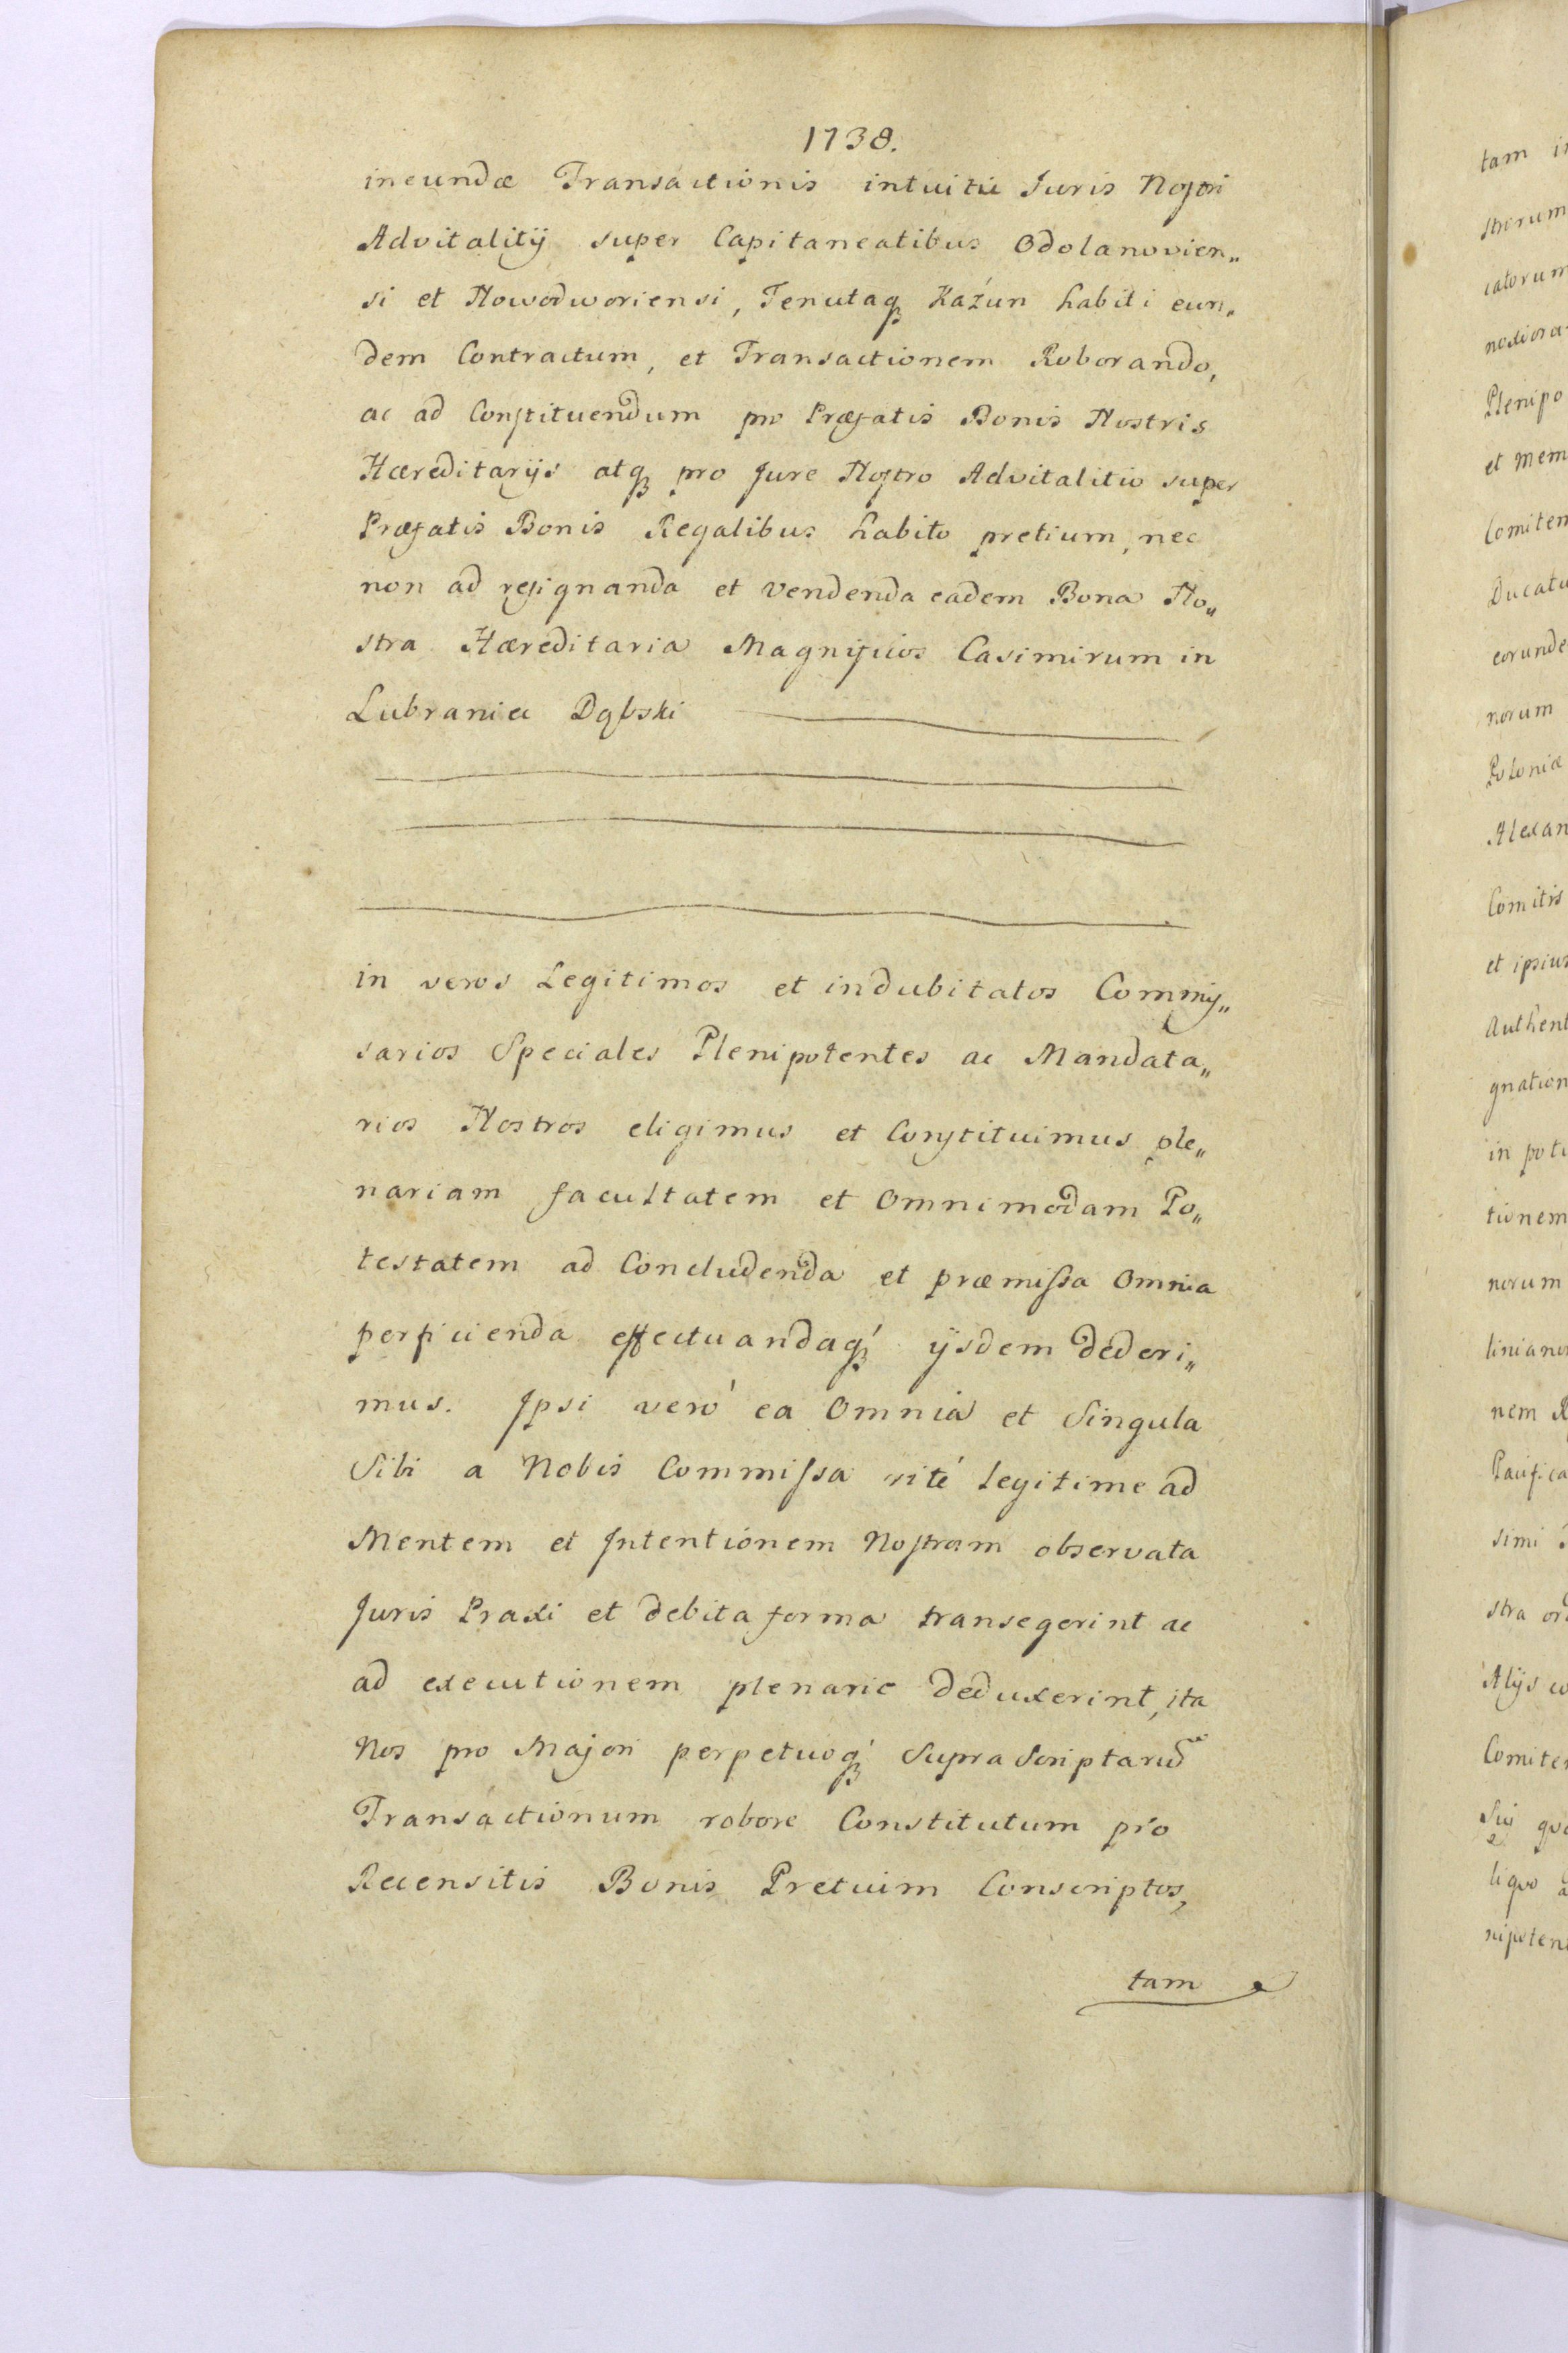 1738.
ineundæ Transactionis intuitu Juris Nostri
Advitalitij super Capitaneatibus Odolanovien„
si et Nowodworiensi, Tenutaq₃ Kaźun habiti eun„
dem Contractum, et Transactionem Roborando,
ac ad Constituendum pro Præfatis Bonis Nostris
Hæreditarijs atq₃ pro Jure Nostro Advitalitio super
Præfatis Bonis Regalibus habito pretium, nec
non ad resignanda et vendenda eadem Bona No„
stra Hæreditaria Magnificos Casimirum in
Lubraniec Dąbski
in veros Legitimos et indubitatos Commis„
sarios Speciales Plenipotentes ac Mandata„
rios Nostros eligimus et Constituimus ple„
nariam facultatem et Omnimodam Po„
testatem ad Concludenda et præmissa Omnia
perficienda effectuandaq₃́ ijsdem dederi„
mus. Ipsi verò ea Omnia et Singula
Sibi a Nobis Commissa rité legitime ad
Mentem et Intentionem Nostram observata
Juris Praxi et debita forma transegerint ac
ad executionem plenarie deduxerint, ita
Nos pro Majori perpetuoq₃́ Supra Scriptarũ
Transactionum robore Constitutum pro
Recensitis Bonis Pretium Conscriptos,
tam
tam
strorum
catorum
Plenipo
et Mem
Comitem
Ducatu
eorunde
norum
Poloniæ
Alexan
Comitis
et ipsius
Authent
gnation
in pote
tionem
norum
nem
Pacifica
simi
stra
Alijs
Comite
liquo
nipoten